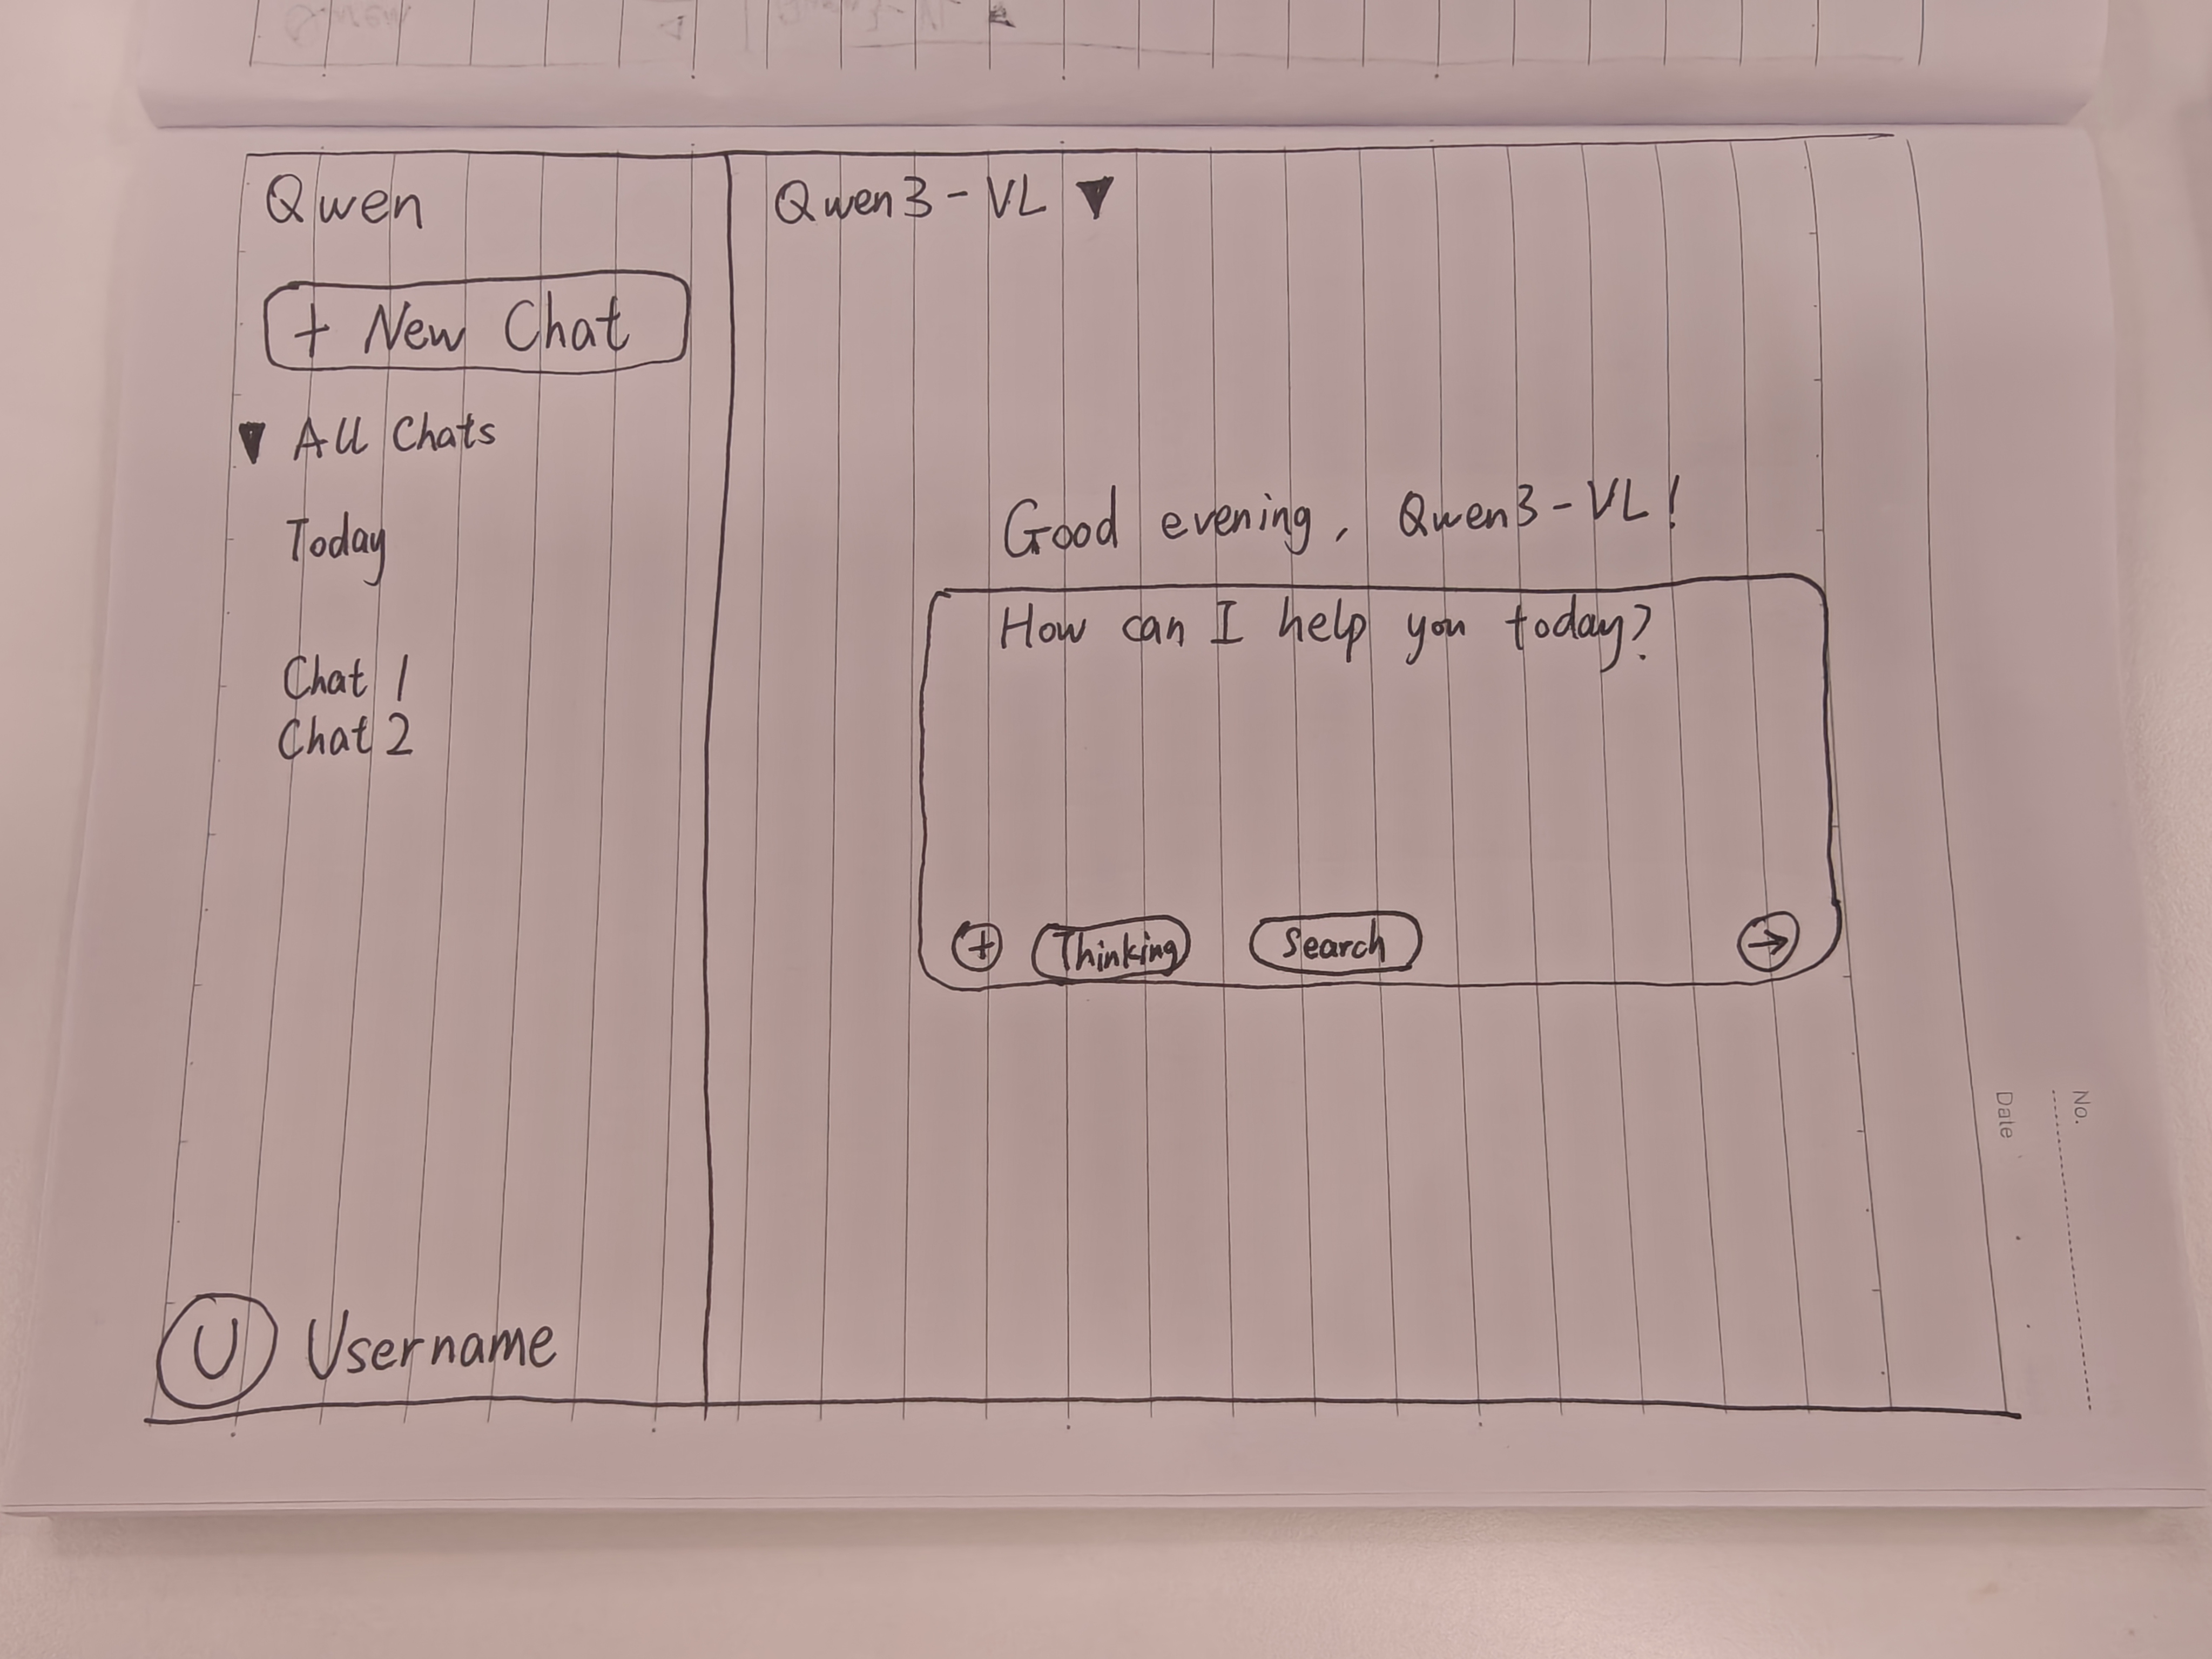 Qwen
+ New Chat
▼ All Chats
Today
Chat 1
Chat 2
U Username
Qwen3-VL ▼
Good evening, Qwen3-VL!
How can I help you today?
+ Thinking Search →
No.
Date